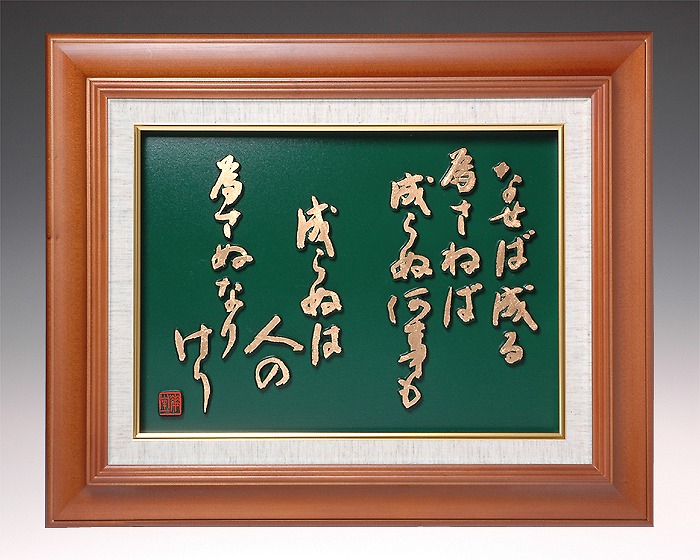 なせば成る
為さねば
成らぬ何事も
成らぬは
人の
為さぬなり
けり